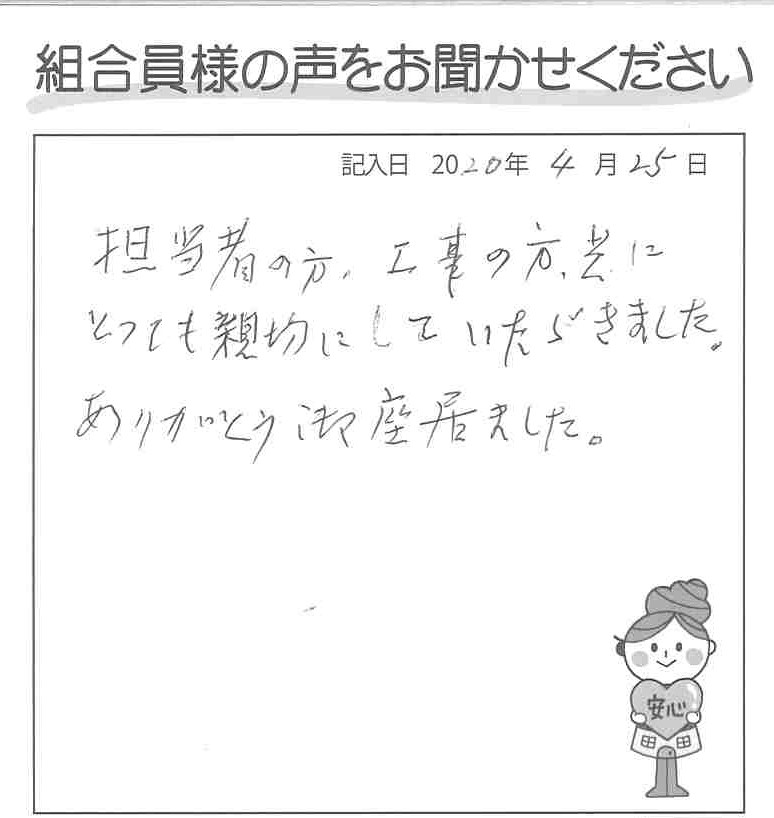 組合員様の声をお聞かせください
記入日 2020年 4月25日
担当者の方、工事の方、共に
とっても親切にしていただきました。
ありがとう御座居ました。
安心